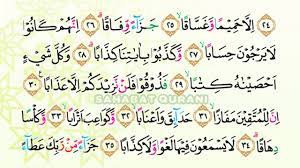 ٢٤ اِلَّا حَمِيْمًا وَّغَسَّاقًا ٢٥ جَزَاۤءً وِّفَاقًا ٢٦ اِنَّهُمْ كَانُوْا
لَا يَرْجُوْنَ حِسَابًا ٢٧ وَّكَذَّبُوْا بِاٰيٰتِنَا كِذَّابًا ٢٨ وَكُلَّ شَيْءٍ
اَحْصَيْنٰهُ كِتٰبًا ٢٩ فَذُوْقُوْا فَلَنْ نَّزِيْدَكُمْ اِلَّا عَذَابًا ٣٠
SAHABAT QURANI
اِنَّ لِلْمُتَّقِيْنَ مَفَازًا ٣١ حَدَاۤىِٕقَ وَاَعْنَابًا ٣٢ وَّكَوَاعِبَ اَتْرَابًا ٣٣ وَّكَأْسًا
دِهَاقًا ٣٤ لَا يَسْمَعُوْنَ فِيْهَا لَغْوًا وَّلَا كِذّٰبًا ٣٥ جَزَاۤءً مِّنْ رَّبِّكَ عَطَاۤءً